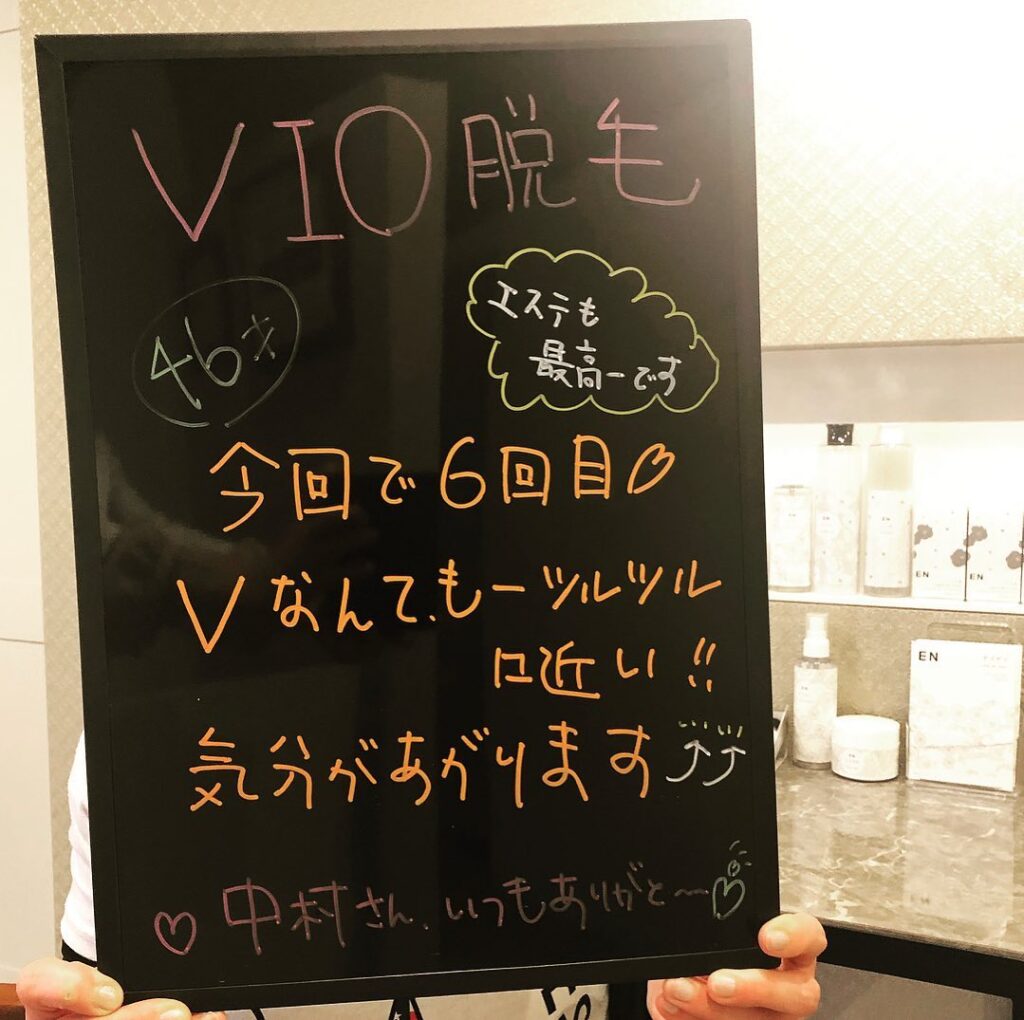 VIO脱毛
46才
エステも
最高ーです
今回で6回目
Vなんて、もーツルツル
に近い!!
気分があがります
中村さん、いつもありがと〜
EN
EN
EN